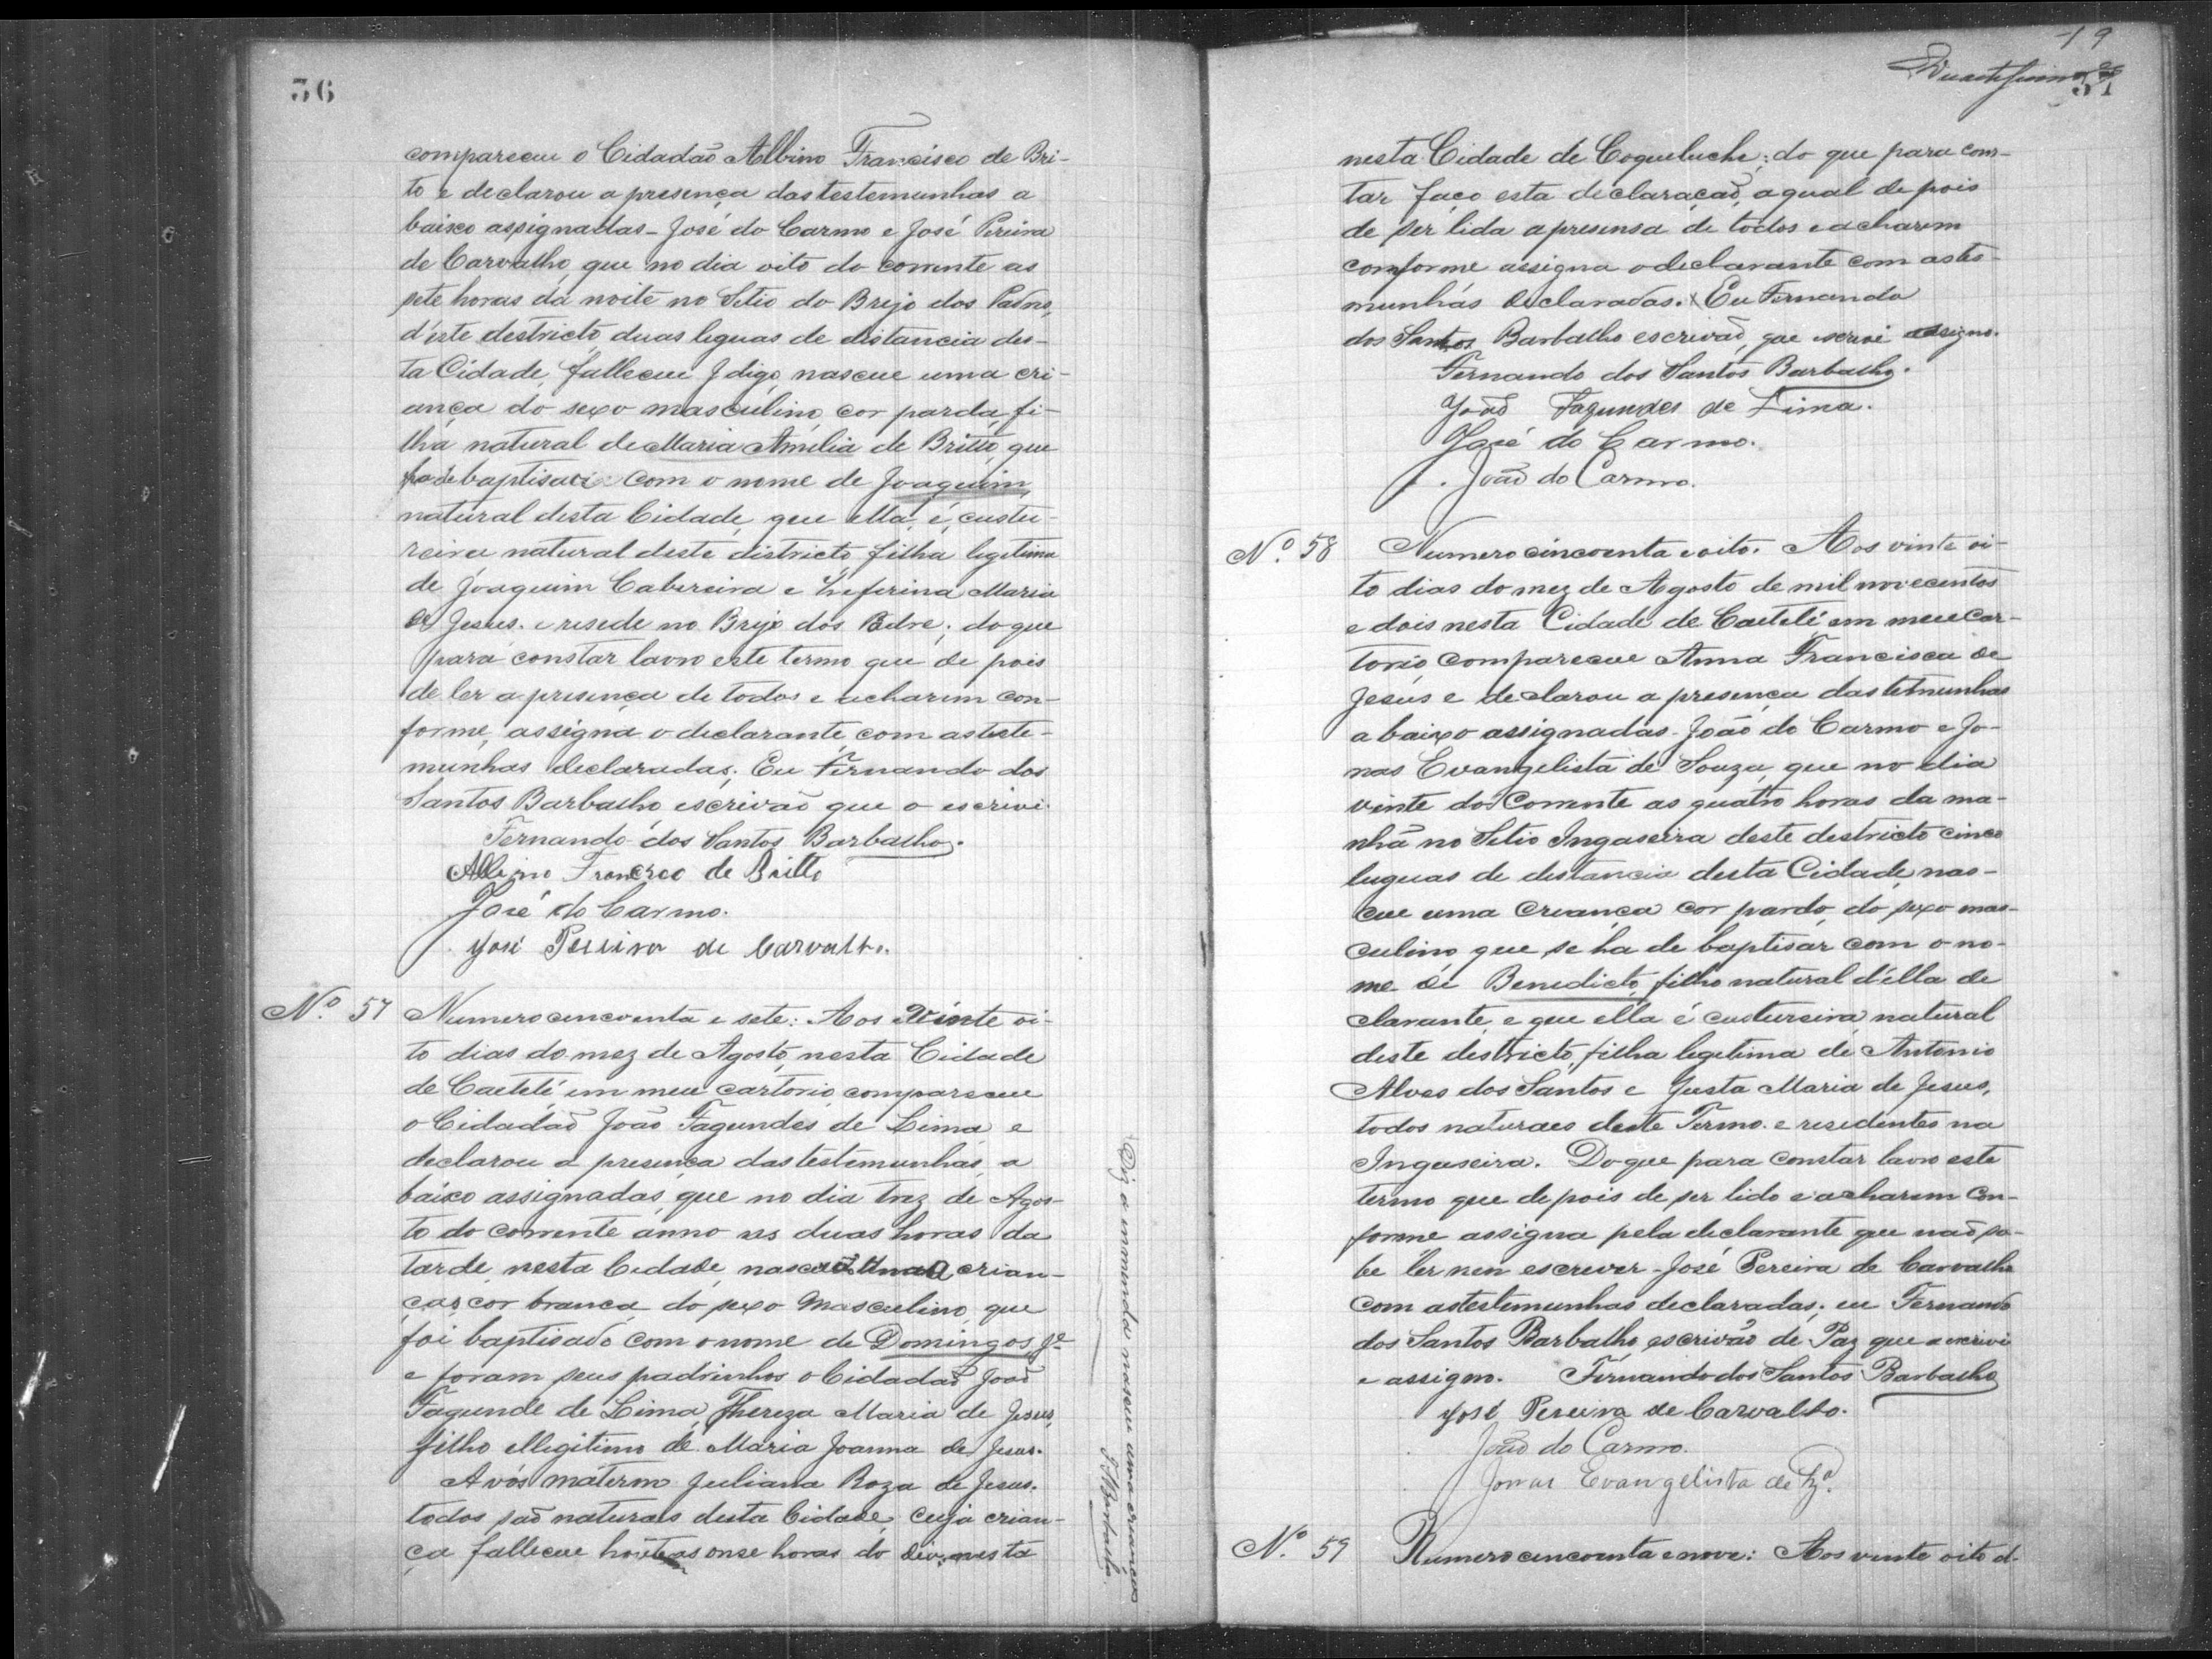 36
compareceu o Cidadão Albino Francisco de Bri-
to e declarou a presença das testemunhas a
baixo assignadas - José do Carmo e José Pereira
de Carvalho, que no dia oito do corrente as
sete horas da noite no Sitio do Brejo dos Padres,
d'este destricto, duas leguas de distancia des-
ta Cidade, falleceu, digo, nasceu uma cri-
ança do sexo masculino, cor parda, fi-
lha natural de Maria Amelia de Britto, que
ha de baptisar com o nome de Joaquim,
natural desta Cidade, que ella é custu-
reira natural deste districto, filha legitima
de Joaquim Cabeceira e Zeferina Maria
de Jesus. e reside no Brejo dos Padre; do que
para constar lavro este termo que de pois
de ler a presença de todos e acharem con-
forme, assigna o declarante com as teste-
munhas declaradas; Eu Fernando dos
Santos Barbalho, escrivão que o escrivi.
Fernando dos Santos Barbalho.
Albino Francisco de Britto
José do Carmo.
José Pereira de Carvalho.
Nº. 57 Numero cencoenta e sete: Aos Vinte oi-
to dias do mez de Agosto, nesta Cidade
de Caeteté em meu cartorio, compareceu
o Cidadão João Fagundes de Lima e
declarou a presença das testemunhas, a
baixo assignadas, que no dia trez de Agos-
to do corrente anno as duas horas da
tarde, nesta Cidade, crian-
ças cor branca, do sexo Masculino, que
foi baptisado com o nome de Domingos,
e foram seus padrinhos o Cidadão João
Fagunde de Lima, Thereza Maria de Jesus,
filho illegitimo de Maria Joanna de Jesus.
Avós materno Juliana Roza de Jesus.
todos são naturaes desta Cidade, cuja crian-
ça falleceu as onse horas do dia, nesta
Diz a emmenda nasceu uma criança
Barbalho.
19
37
nesta Cidade de Coqueluche; do que para cons-
tar faço esta declaração, a qual de pois
de ser lida a presensa de todos e acharem
comforme assigna o declarante com as tes-
munhas declaradas. Eu Fernando
dos Santos Barbalho escrivão, que escrivi assigno.
Fernando dos Santos Barbalho.
João Fagundes de Lima.
José do Carmo.
João do Carmo.
Nº. 58 Numero cincoenta e oito. Aos vinte oi-
to dias do mez de Agosto de mil novecentos
e dois nesta Cidade de Caeteté em meu Car-
torio compareceu Anna Francisca de
Jesus e declarou a presença das temunhas
a baixo assignadas - João do Carmo e Jo-
nas Evangelista de Souza, que no dia
vinte do Corrente as quatro horas da ma-
nhã no Sitio Ingaseira deste destricto cinco
leguas de distancia desta Cidade, nas-
ceu uma Creança cor pardo, do sexo mas-
culino que se ha de baptisar com o no-
me de Benedicto, filho natural d'ella de
clarante, e que ella é custureira natural
deste destricto, filha legetima de Antonio
Alves dos Santos e Justa Maria de Jesus,
todos naturaes deste Termo. e residentes na
Ingaseira. Do que para Constar lavro este
termo que de pois de ser lido e acharem Con-
forme assigna pela declarante que não sa-
be ler nem escrever - José Pereira de Carvalho
com as testemunhas declaradas; eu Fernando
dos Santos Barbalho, escrivão de Paz que o escrivi
e assigno. Fernando dos Santos Barbalho
José Pereira de Carvalho.
João do Carmo.
Jonas Evangelista de Sza.
Nº. 59 Numero cencoenta e nove: Aos vinte oito d-